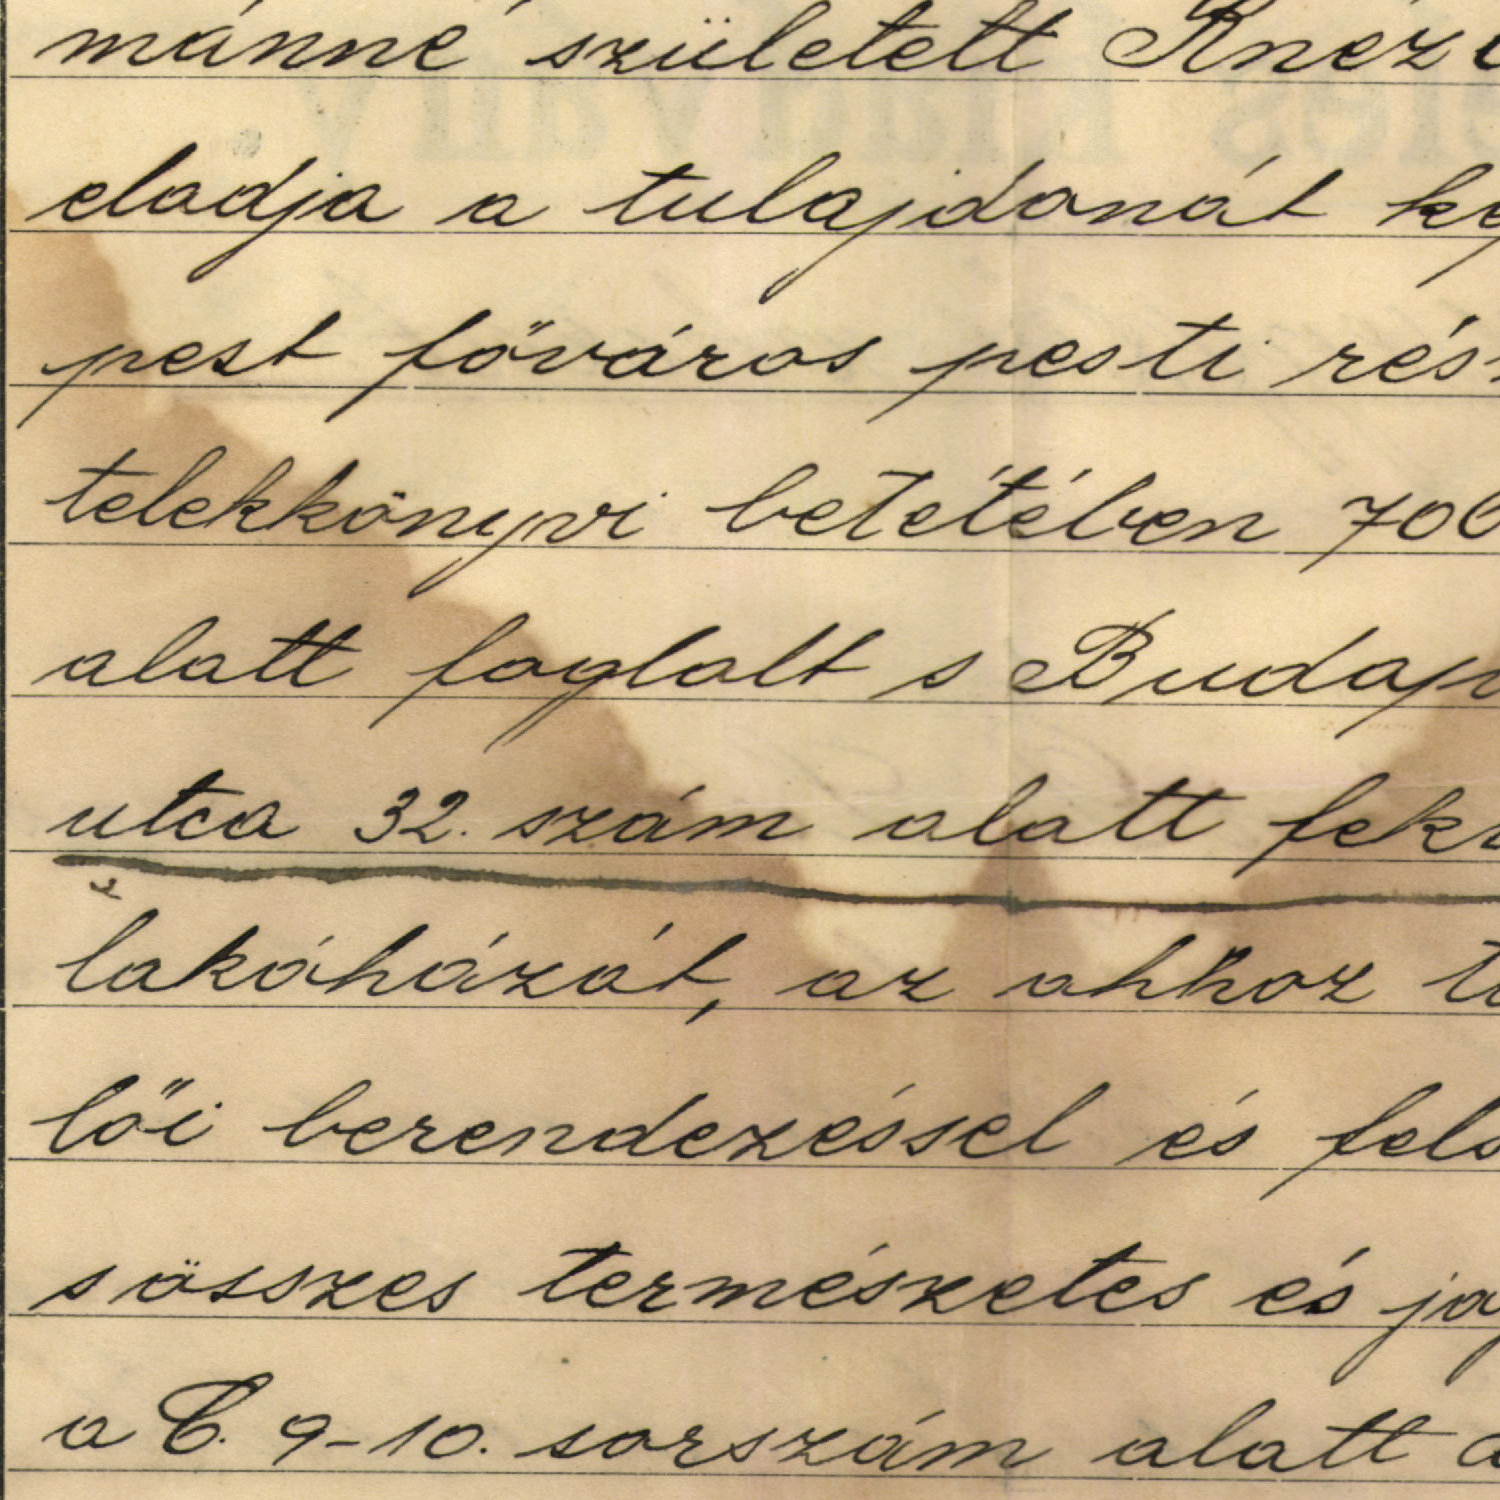 mánné született Knéz
eladja a tulajdonát ké
pest főváros pesti rész
telekkönyvi betétében 706
alatt foglalt s Budap
utca 32. szám alatt fekv
lakóházát, az ahhoz t
lői berendezéssel és fels
s összes természetes és jog
a C. 9-10. sorszám alatt